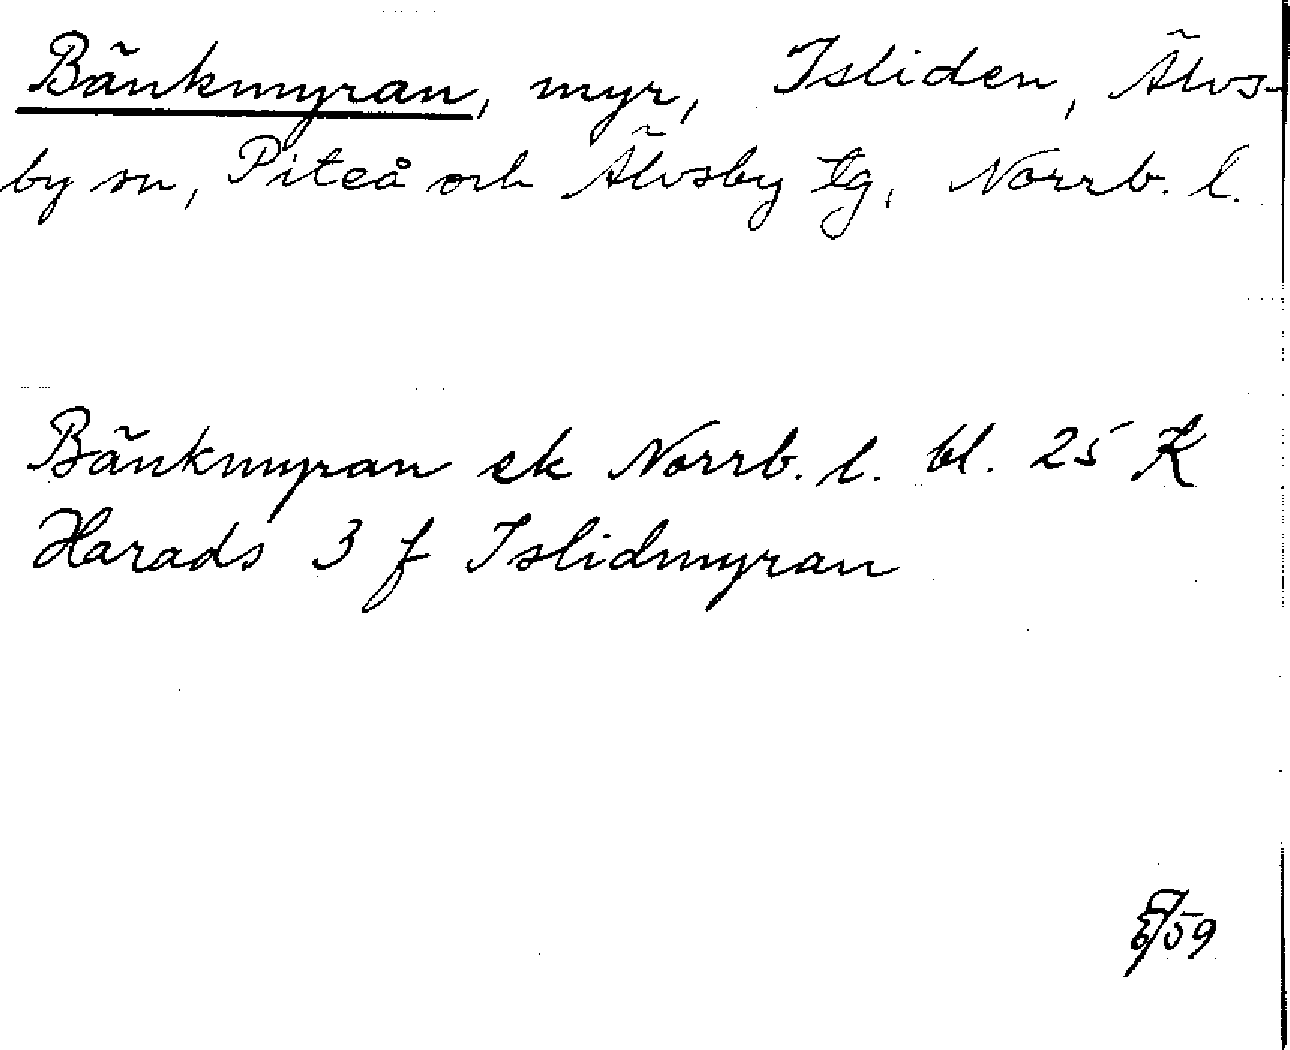 Bänkmyran, myr, Isliden, Älvs-
by sn, Piteå och Älvsby tg, Norrb. l.
Bänkmyran ek Norrb. l. bl. 25 K
Harads 3 f Islidmyran
/59